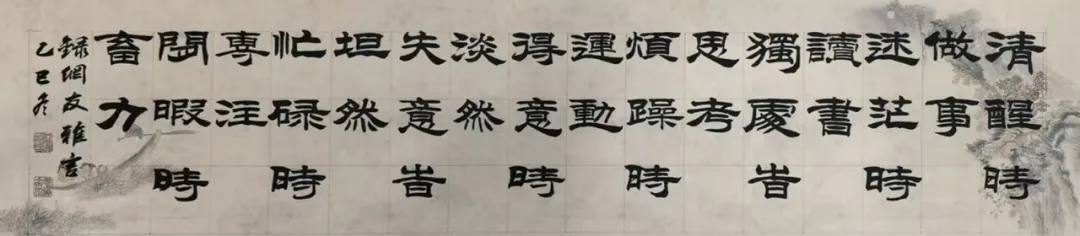 清醒時
做事
迷茫時
讀書
獨處旹
思考
煩躁時
運動
得意時
淡然
失意旹
坦然
忙碌時
專注
閒暇時
畜力
錄網友雅言
乙巳冬